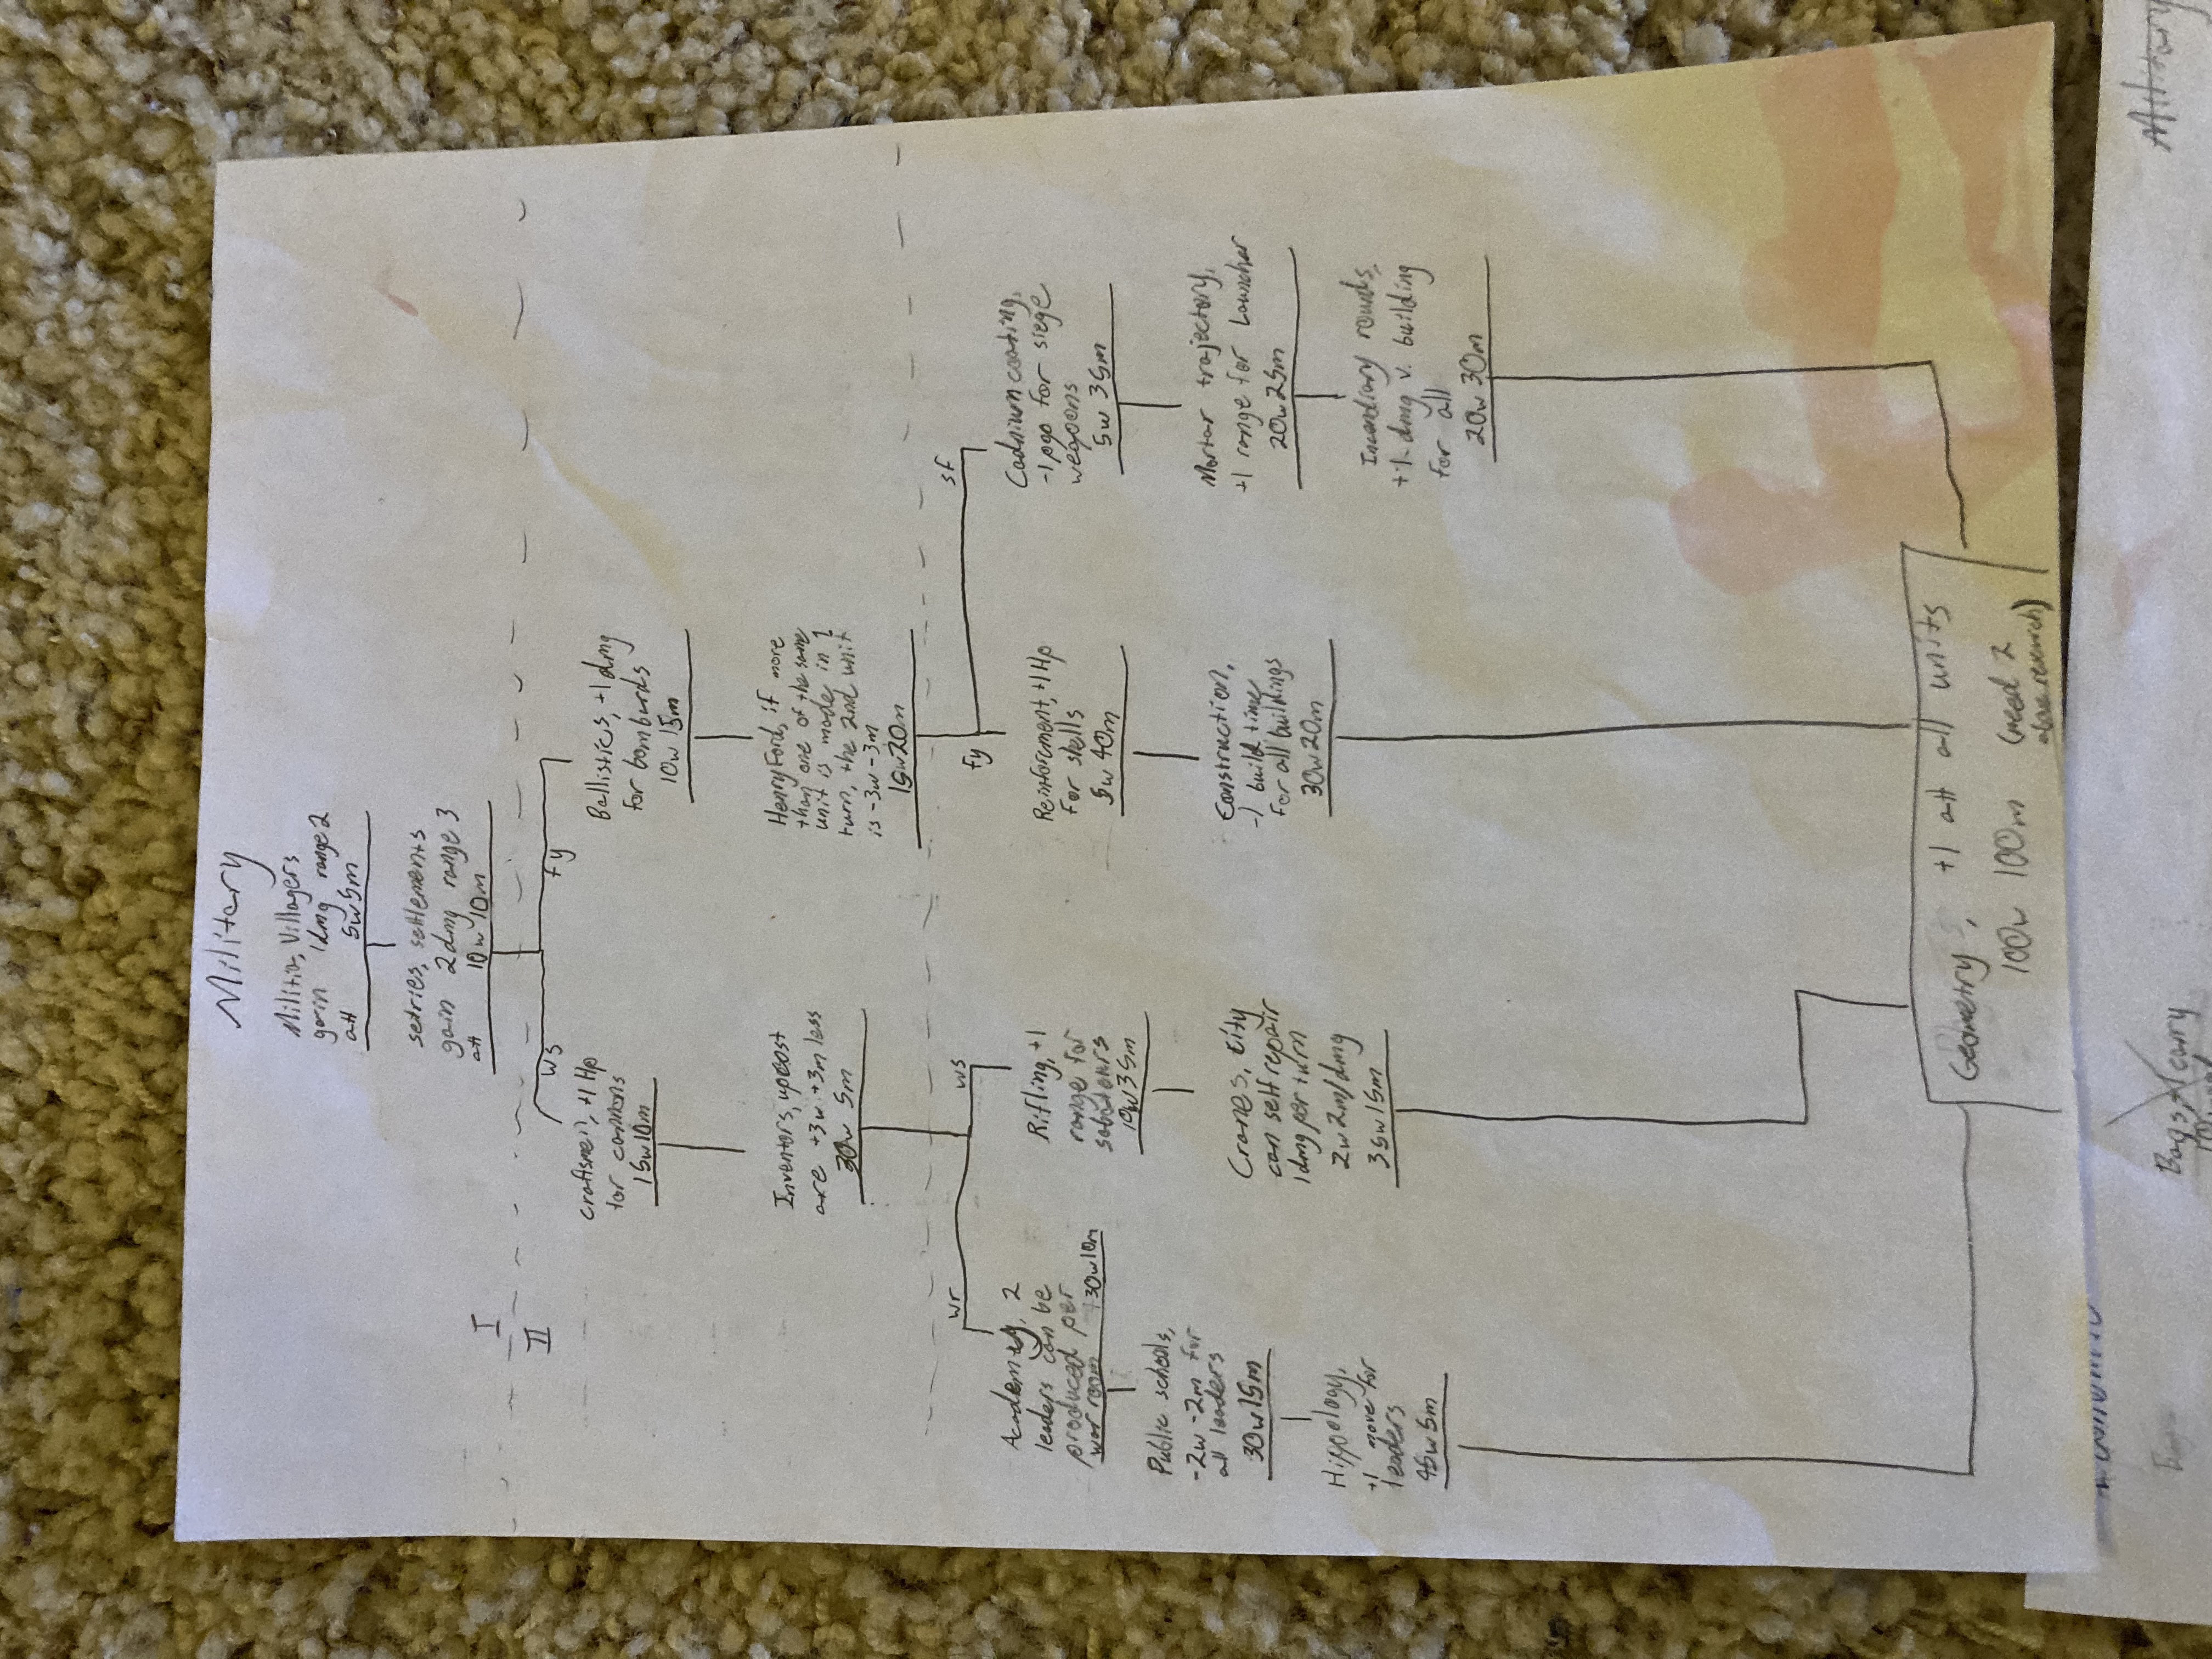 Military
Militia, Villagers
gain 1dmg range 2
att 5w5m
setries, settlements
gain 2dmg range 3
att 10w 10m
I
II
ws
fy
craftsmen, +1Hp
for cannons
15w10m
Ballistics, +1dmg
for bombards
10w 15m
Inventors, upcost
are +3w +3m less
30w 5m
Henry Ford, if more
than one of the same
unit is made in 1
turn, the 2nd unit
is -3w -3m
15w20m
wr
ws
fy
sf
Academey, 2
leaders can be
produced per
war room 30w10m
Rifling, +1
range for
saboteurs
10w35m
Reinforcment, +1Hp
for shells
5w 40m
Cadnium coating,
-1 pop for siege
weapons
5w 35m
Public schools,
-2w -2m for
all leaders
30w15m
Cranes, City
can self repair
1dmg per turn
2w2m/dmg
35w15m
Construction,
-1 build time
for all buildings
30w20m
Mortar trajectory,
+1 range for Launcher
20w25m
Hippology,
+1 move for
leaders
45w5m
Incendiary rounds,
+1 dmg v. building
for all
20w 30m
Geometry, +1 att all units
100w 100m (need 2
above research)
Bags, +1 carry
Military